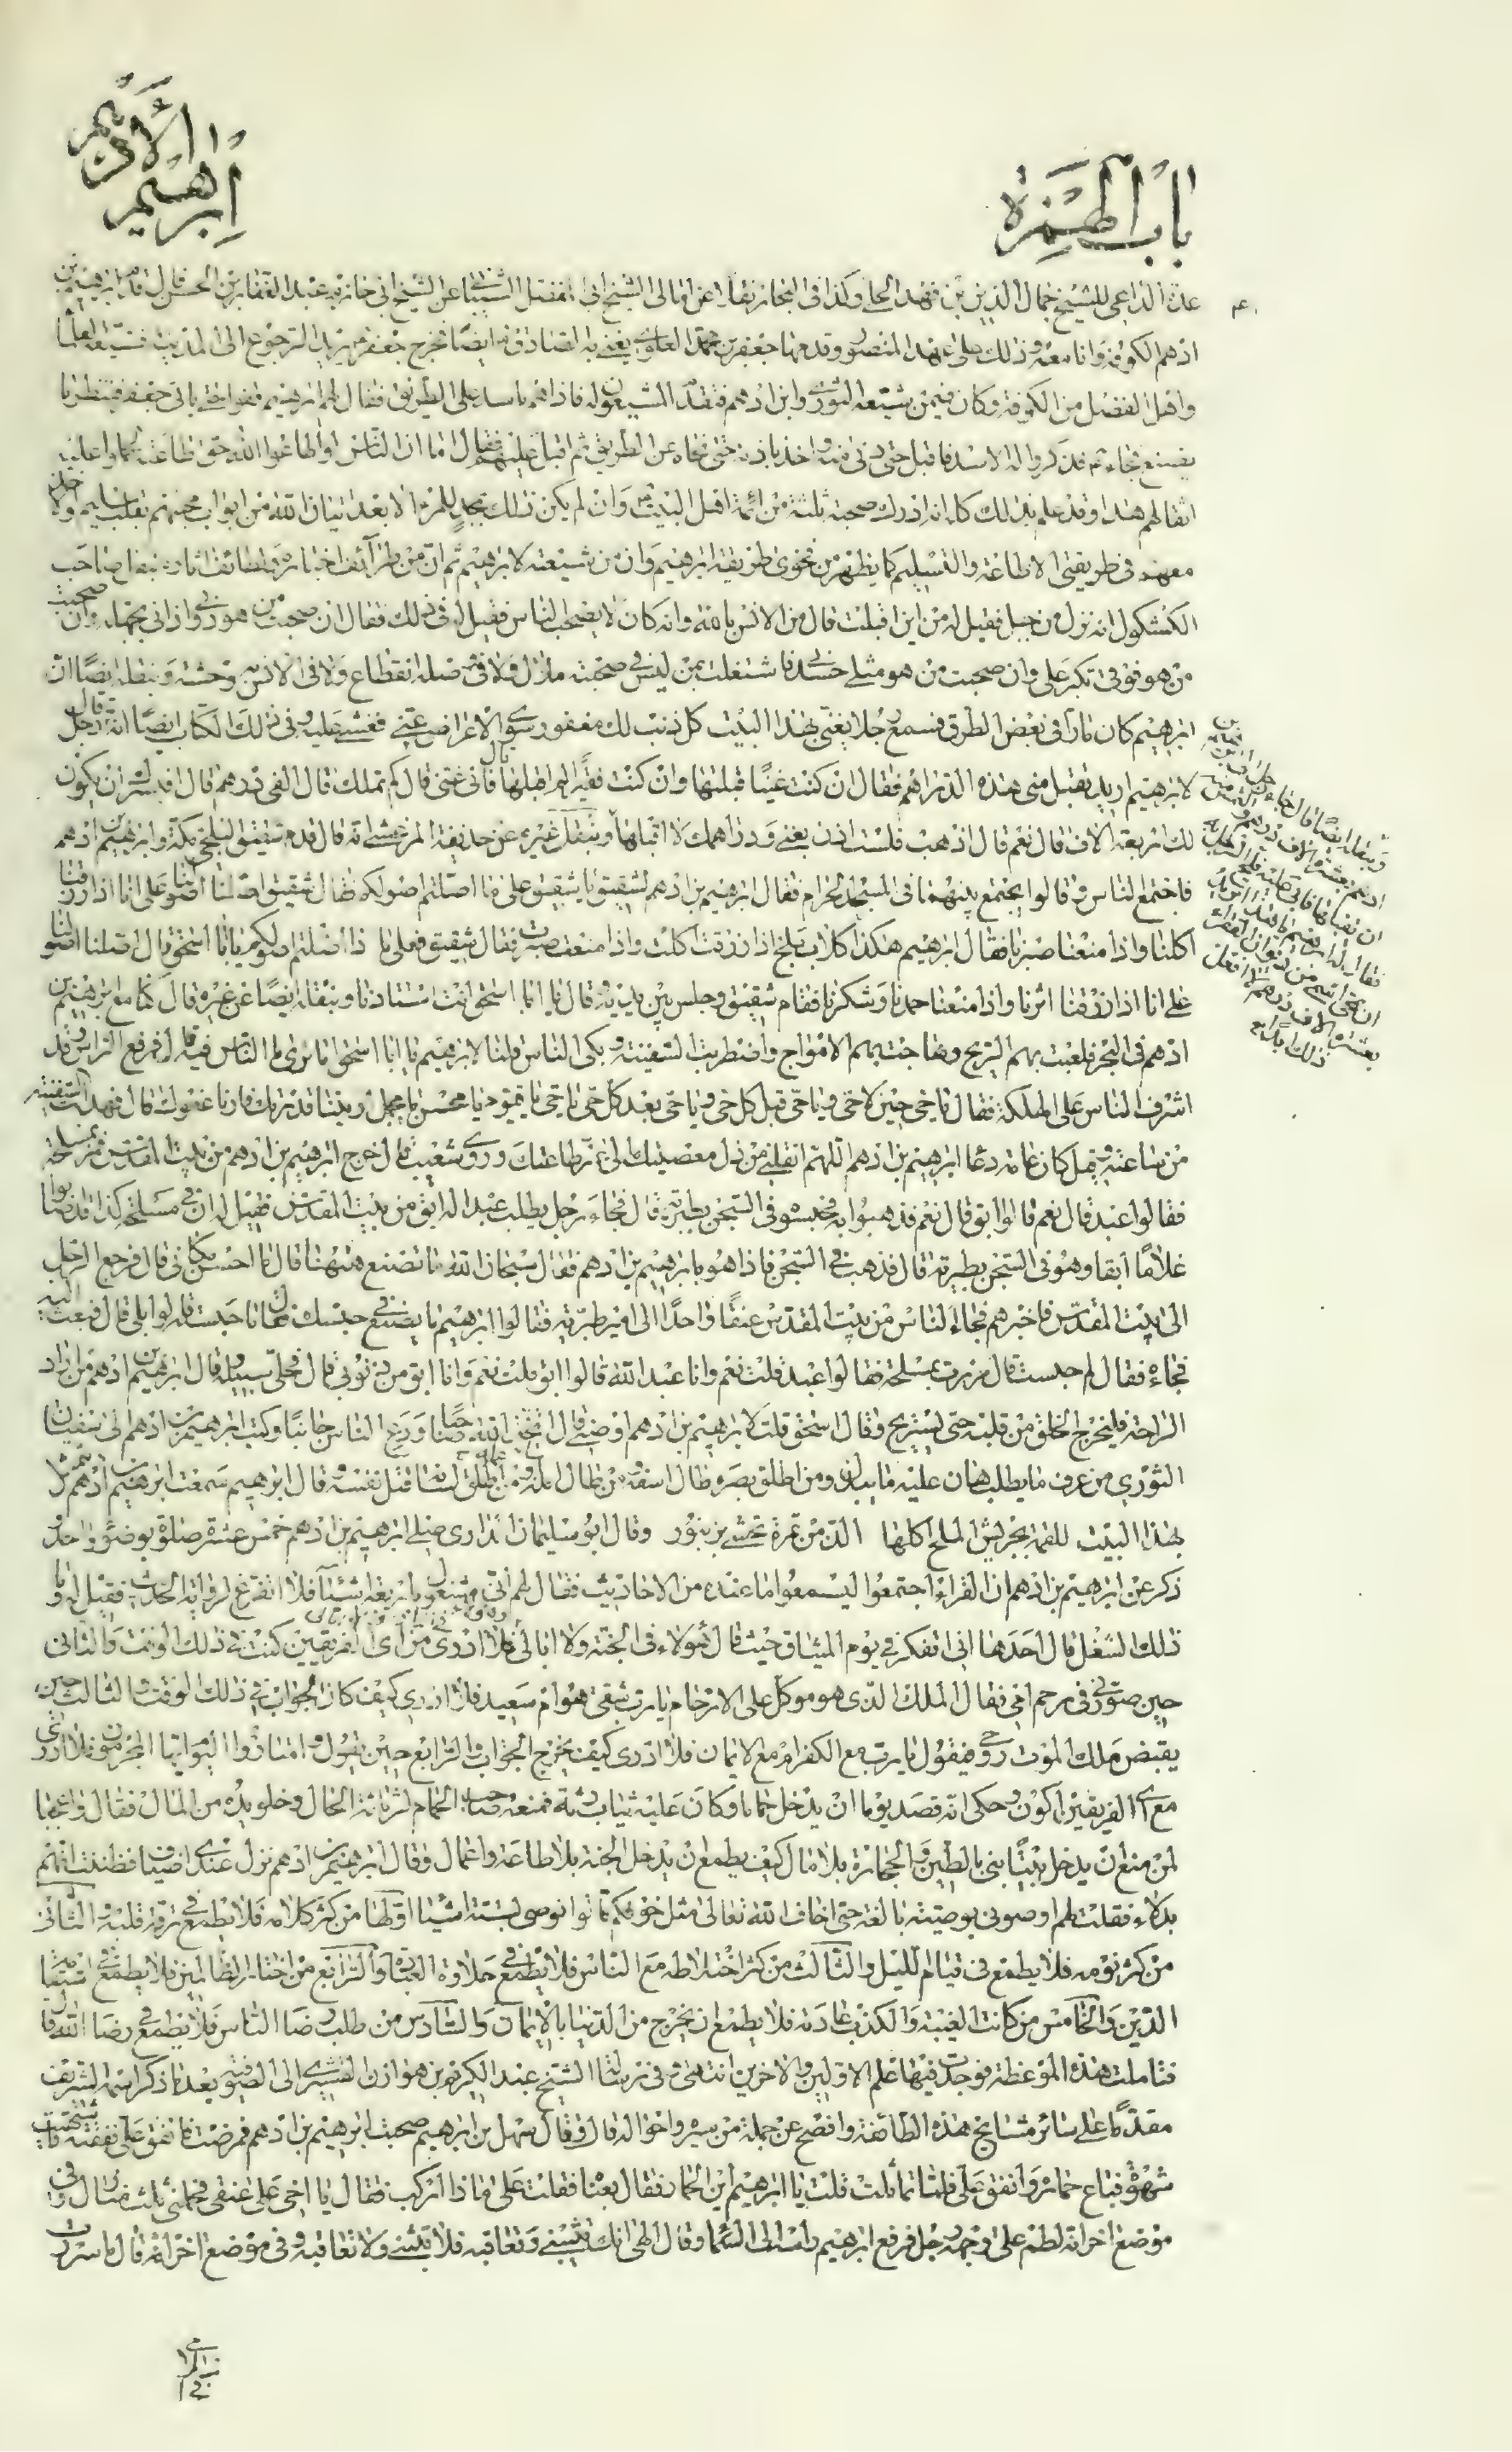 باب الهمزة
إبرهيم الأدهم
عدة الداعي للشيخ جمال الدين بن فهد الحلي وكذا في البحار نقلا عن امالي الشيخ ابي المفضل الشيباني عن الشيخ ابي حازم عبد الغفار بن الحسن قال قدم ابرهيم بن
ادهم الكوفة وانا معه وذلك على عهد المنصور وقدمها جعفر بن محمد العلوي يعني به الصادق ايضا فخرج جعفر يريد الرجوع الى المدينة فشيعه العلما
واهل الفضل من الكوفة وكان فيمن شيعه الثوري وابن ادهم فتقدم المشيعون له فاذا هم باسد على الطريق فقال لهم ابرهيم قفوا حتى ياتي جعفر فننظر ما
يصنع فجاء فذكروا له الاسد فاقبل حتى دنى منه واخذ باذنه حتى نحاه عن الطريق ثم اقبل عليهم فقال اما ان الناس لو اطاعوا الله حق طاعته لحملوا عليه
اثقالهم هذا وقد علم بذلك كله انه ادرك صحبة ثلثة من ائمة اهل البيت وان لم يكن ذلك بمجد للمرء الا بعد اتيان الله من ابواب محبتهم بقلب سليم وكان
معهم في طريقتي الاطاعة والتسليم كما يظهر من فحوى طريقة ابرهيم وان من شيعته لابرهيم ثم ان من طرائف اخباره ولطائف اثاره بنقل صاحب
الكشكول انه نزل من جبل فقيل له من اين اقبلت قال من الانس بالله وانه كان لا يصحب الناس فقيل له في ذلك فقال ان صحبت من هو دوني اذاني بجهله وان صحبت
من هو فوقي تكبر علي وان صحبت من هو مثلي حسدني فاشتغلت بمن ليس في صحبته ملال ولا في وصله انقطاع ولا في الانس به وحشة وبنقله ايضا ان
ابرهيم كان مارا في بعض الطرق فسمع رجلا يغني بهذا البيت كل ذنب لك مغفور سوى الاعراض عني فغشي عليه وفي ذلك الكتاب ايضا انه قال رجل
لابرهيم اريد تقبل مني هذه الدراهم فقال ان كنت غنيا قبلتها وان كنت فقيرا لم اقبلها قال فاني غني قال كم تملك قال الفي درهم قال افيسرك ان يكون
لك اربعة الاف قال نعم قال اذهب فلست اذن بغني ودراهمك لا اقبلها وبنقل غيره عن حذيفة المرعشي انه قال قدم شقيق البلخي مكة وابرهيم بن ادهم
فاجتمع الناس وقالوا يجتمع بينهما في المسجد الحرام فقال ابرهيم بن ادهم لشقيق يا شقيق على ما اصلتم اصولكم فقال شقيق اصلنا اصولنا على انا اذا رزقنا
اكلنا واذا منعنا صبرنا فقال ابرهيم هكذا كلاب بلخ اذا رزقت اكلت واذا منعت صبرت فقال شقيق فعلى ما ذا اصلتم اصولكم يا ابا اسحق قال اصلنا اصولنا
على انا اذا رزقنا اثرنا واذا منعنا حمدنا وشكرنا فقام شقيق وجلس بين يديه وقال يا ابا اسحق انت استادنا وبنقله ايضا عن غيره قال كنا مع ابرهيم بن
ادهم في البحر فلعبت بهم الريح وهاجت بهم الامواج واضطربت السفينة وبكى الناس فقلنا لابرهيم يا ابا اسحق اما ترى ما الناس فيه قال فرفع الراس وقد
اشرف الناس على الهلكة فقال يا حي حين لا حي ويا حي قبل كل حي ويا حي بعد كل حي يا حي يا قيوم يا محسن يا مجمل اريتنا قدرتك فارنا عفوك قال فهدات السفينة
من ساعته وقيل كان عامة دعا ابرهيم بن ادهم اللهم انقلني من ذل معصيتك الى عز طاعتك وروى شعيب قال خرج ابرهيم بن ادهم من بيت المقدس فمر بمسلحة
فقالوا عبد قال نعم قالوا ابق قال نعم فذهبوا به فحبسوه في السجن بطبرية قال فجاء رجل يطلب عبدا له ابق من بيت المقدس فقيل له ان في مسلحة كذا قد اصابوا
غلاما ابقا وهو في السجن بطبرية قال فذهب الى السجن فاذا هو بابرهيم بن ادهم فقال سبحان الله ما تصنع ههنا قال ما احسن مكاني قال فرجع الرجل
الى بيت المقدس فاخبرهم فجاء الناس من بيت المقدس عنقا واحدا الى امير طبرية فقالوا ابرهيم ما يصنع في حبسك قال ما حبسته قالوا بلى قال فبعث اليه
فجاء فقال لم حبست قال مررت بمسلحة فقالوا عبد قلت نعم وانا عبد الله قالوا ابق قلت نعم وانا ابق من ذنوبي قال فخلى سبيله وقال ابرهيم بن ادهم من اراد
الراحة فليخرج الخلق من قلبه حتى يستريح وقال اسحق قلت لابرهيم بن ادهم اوصني قال اتخذ الله صاحبا ودع الناس جانبا وكتب ابرهيم بن ادهم الى سفيان
الثوري من عرف ما يطلب هان عليه ما يبذل ومن اطلق بصره طال اسفه ومن طال امله ساء عمله ومن اطلق لسانه قتل نفسه وقال ابرهيم سمعت ابرهيم بن ادهم يتمثل
بهذا البيت للقمة بجريش الملح اكلها الذ من تمرة تحشى بزنبور وقال ابو سليمان الداراني صلى ابرهيم بن ادهم خمس عشرة صلوة بوضوء واحد
ذكر عن ابرهيم بن ادهم ان القراء اجتمعوا ليسمعوا ما عنده من الاحاديث فقال لهم اني مشغول باربعة اشياء فلا اتفرغ لرواية الحديث فقيل له وما
ذلك الشغل قال احدها اني اتفكر في يوم الميثاق حيث قال هؤلاء في الجنة ولا ابالي وهؤلاء في النار ولا ابالي فلا ادري من اي الفريقين كنت في ذلك الوقت والثاني
حين صورني في رحم امي فقال الملك الذي هو موكل على الارحام يا رب شقي هو ام سعيد فلا ادري كيف كان الجواب في ذلك الوقت والثالث حين
يقبض ملك الموت روحي فيقول يا رب مع الكفر ام مع الايمان فلا ادري كيف يخرج الجواب والرابع حين يقول وامتازوا اليوم ايها المجرمون فلا ادري
مع اي الفريقين اكون وحكى انه قصد يوما ان يدخل حماما وكان عليه ثياب رثة فمنعه صاحب الحمام لرثاثة الحال وخلو يده من المال فقال واعجبا
لمن منع ان يدخل بيتا بني بالطين والحجارة بلا مال كيف يطمع ان يدخل الجنة بلا طاعة واعمال وقال ابرهيم بن ادهم نزل عندي اضياف فظننت انهم
بدلاء فقلت لهم اوصوني بوصية بالغة حتى اخاف الله تعالى مثل خوفكم قالوا نوصي بستة اشيا اولها من كثر كلامه فلا يطمع في رقة قلبه والثاني
من كثر نومه فلا يطمع في قيام الليل والثالث من كثر اختلاطه مع الناس فلا يطمع في حلاوة العبادة والرابع من اختار الظالمين فلا يطمع في استقامة
الدين والخامس من كانت الغيبة والكذب عادته فلا يطمع ان يخرج من الدنيا بالايمان والسادس من طلب رضا الناس فلا يطمع في رضا الله قال
فتاملت هذه الموعظة فوجدت فيها علم الاولين والاخرين انتهى وفي رسالة الشيخ عبد الكريم بن هوازن القشيري الى الصوفية بعد ما ذكر اسمه الشريف
مقدما على سائر مشايخ هذه الطائفة وافصح عن جملة من سيره واحواله قال وقال سهل بن ابرهيم صحبت ابرهيم بن ادهم فمرضت فانفق علي نفقته فاشتهيت
شهوة فباع حماره وانفق علي فلما تماثلت قلت يا ابرهيم اين الحمار فقال بعنا فقلت على ماذا اركب فقال يا اخي على عنقي فحملني ثلث منازل وفي
موضع اخر انه لطم على وجهه رجل فرفع ابرهيم راسه الى السما وقال الهي انك تثيبني وتعاقبه فلا تثبني ولا تعاقبه وفي موضع اخر انه قال ما سررت
وبنقله ايضا قال جاء رجل الى ابرهيم بن
ادهم بعشرة الاف درهم والتمس منه
ان يقبلها فابى عليه فالح الرجل
فقال له ابرهيم يا هذا اتريد
ان تمحو اسمي من ديوان الفقراء
بعشرة الاف درهم لا افعل
ذلك ابدا